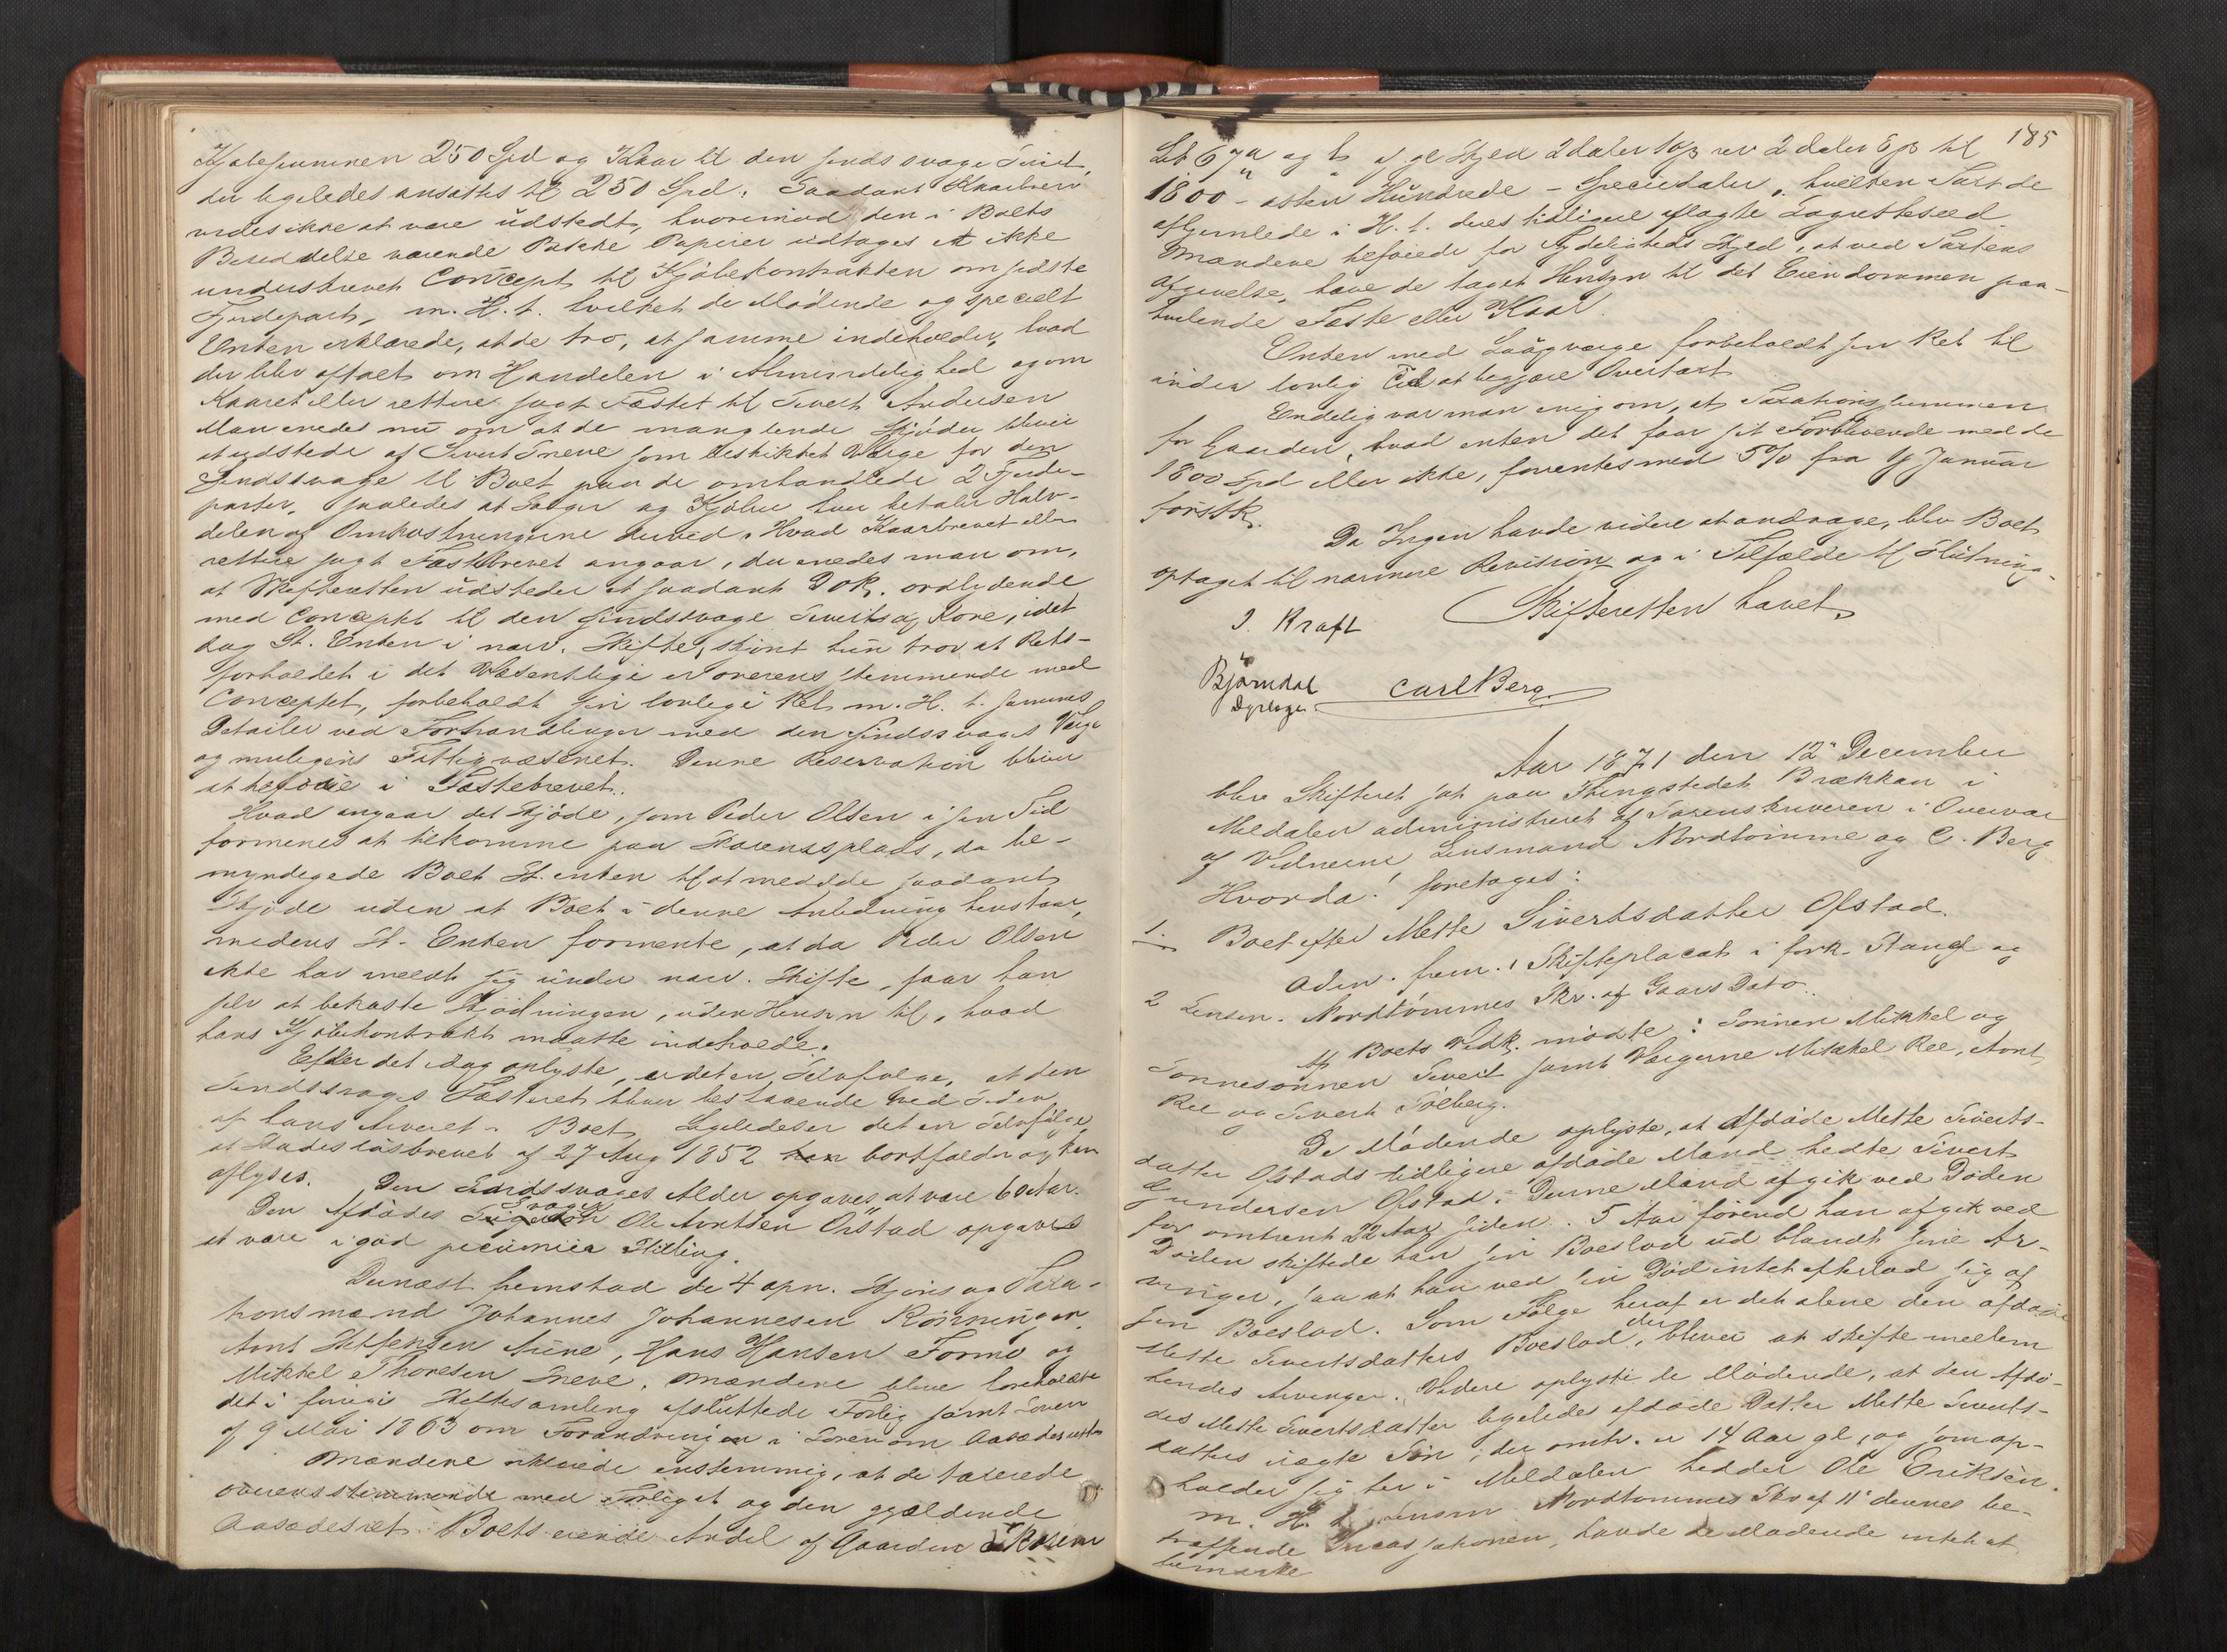 Kjøbesummen 250 Spd og Kaar til den sindssvage Sivert,
der ligeledes ansattes til 250 Spd. Saadant Kaarbrev
vides ikke at være udstedt, hvorimod den i Boets
Bereddelse værende Pakke Papirer udtages et ikke
underskrevet Concept til Kjøbekontrakten om sidste
Fjerdepart, m. H. t. hvilket de Mødende og specielt
Enken erklærede, at de tro, at samme indeholder, hvad
der blev aftalt om Handelen i Almindelighed og om
Kaaret eller rettere sagt Føstet til Sivert Andersen
Man enedes nu om at de manglende Skjøder bliver
at udstede af Sivert Sneve som beskikket Værge for den
Sindssvage til Boet paa de omhandlede 2 Fjerde-
parter, saaledes at Sælger og Kjøber hver betaler Halv-
delen af Omkostningerne derved. Hvad Kaarbrevet eller
rettere sagt Føstebrevet angaar, da enedes man om,
at Skifteretten udsteder et saadant Dok. ordlydende
med Conceptet til den sindssvage Sivert og Kone, idet
dog St. Enken i nærv. Skifte, skjønt hun tror at Rets-
forholdet i det Væsentlige er overensstemmende med
Conceptet, forbeholdt sin lovlige Ret m. H. t. sammes
Detailer ved Forhandlinger med den sindssvages Værge
og muligens Fattigvæsenet. Denne Reservation bliver
at tilføie i Føstebrevet.
Hvad angaar det Skjøde, som Peder Olsen i sin Tid
formenes at tilkomme paa Haaensplads, da be-
myndigede Boet St. enken til at meddele saadant
Skjøde uden at Boet i denne Anledning henstaar,
medens St. Enken formente, at da Peder Olsen
ikke har meldt sig under nærv. Skifte, faar han
selv at bekoste Skjødningen, uden Hensyn til, hvad
hans Kjøbekontrakt maatte indeholde.
Efter det idag oplyste, er det en Selvfølge, at den
Sindssvages Føsteret bliver bestaaende ved Siden
af hans Arveret i Boet. Ligeledes er det en Selvfølge,
at Stadesløsbrevet af 27 Aug 1852 bortfalder og kan
aflyses. Den Sindssvages Alder opgaves at være 60 Aar.
Den Afdødes Svoger Ole Arntsen Ørstad opgaves
at være i god pecuniær Stilling.
Dernæst fremstod de 4 opn. Skjøns og Taxa-
tionsmænd Johannes Johannesen Rønningen,
Arnt Steffensen Aune, Hans Hansen Formo og
Mikkel Thoresen Sneve. Mændene bleve foreholdte
det i forrige Skiftesamling afsluttede Forlig samt Loven
af 9 Mai 1863 om Forandringer i Loven om Aasædesretten
Mændene erklærede enstemmig, at de taxerede
overensstemmende med Forliget og den gjældende
Aasædesret Boets eiende Andel af Gaarden
185
Lb 67 a og b af gl Skyld 2 daler 1 ort ny 2 daler til
1800 - atten Hundrede - Speciedaler, hvilken Taxt de
afhjemlede i H. t. deres tidligere aflagte Lagretteseed
Mændene tilføiede for Tydeligheds Skyld, at ved Taxtens
Afgivelse, have de taget Hensyn til det Eiendommen paa-
hvilende Føste eller Kaar.
Enken med Laugværge forbeholdt sin Ret til
inden lovlig Tid at begjære Overtaxt
Endelig var man enig om, at Taxationssummen
for Gaarden, hvad enten det faar sit Forblivende med de
1800 Spd eller ikke, forrentes med 5% fra 1ste Januar
førstk.
Da Ingen havde videre at andrage, blev Boet
optaget til nærmere Revision og i Tilfælde til Slutning.
Skifteretten hævet.
J. Kraft
Bjørndal
Carl Berg.
Aar 1871 den 12te December
blev Skifteret sat paa Thingstedet Brækkan i
Meldalen administreret af Sorenskriveren i Overvær
af Vidnerne Lensmand Nordtømme og C. Berg
Hvorda! foretages:
1. Boet efter Mette Sivertsdatter Ofstad.
Adm. frem. 1 Skifteplacat i fork. Stand og
2 Lensm. Nordtømmes Skr. af Gaars Dato.
Af Boets Vedk. mødte: Sønnen Mikkel og
Sønnesønnen Sivert samt Værgerne Mikkel Ree, Arnt
Ree og Sivert Solberg.
De Mødende oplyste, at Afdøde Mette Siverts-
datter Ofstads tidligere afdøde Mand hedte Sivert
Gundersen Ofstad. Denne Mand afgik ved Døden
for omtrent 22 Aar siden. 5 Aar førend han afgik ved
Døden skiftede han sin Boeslod ud blandt sine Ar-
vinger, saa at han ved sin Død intet efterlod sig af
sin Boeslod. Som Følge heraf er det alene den afdøde
Mette Sivertsdatters Boeslod, der bliver at skifte mellem
hendes Arvinger. Videre oplyste de Mødende, at den Afdø-
des Mette Sivertsdatter ligelede afdøde Datter Mette Siverts-
datters uægte Søn, der omtr. er 14 Aar gl., og som op-
holder sig her i Meldalen hedder Ole Eriksen.
m. H. t. Lensm. Nordtømmes Skr af 11te dennes be-
træffende Incassationen, havde de Mødende intet at
bemærke